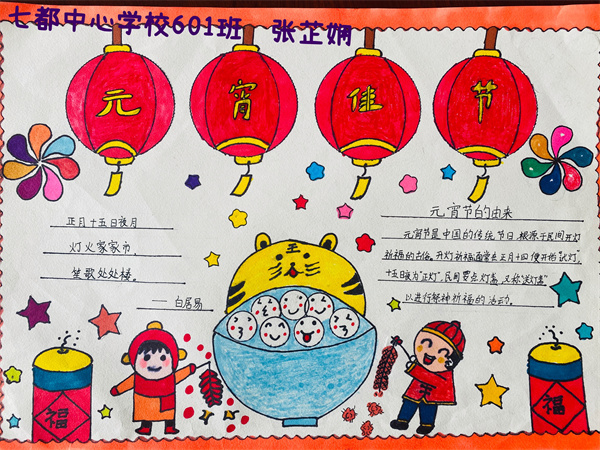 七都中心学校601班 张芷娴
元宵佳节
正月十五日夜月
灯火家家市,
笙歌处处楼。
——白居易
元宵节的由来
元宵节是中国的传统节日,根源于民间开灯
祈福的古俗。开灯祈福通常在正月十四便开始"试灯",
十五日夜为"正灯",民间要点灯盏,又称"送灯盏"
以进行祭神祈福的活动。
王
福
福